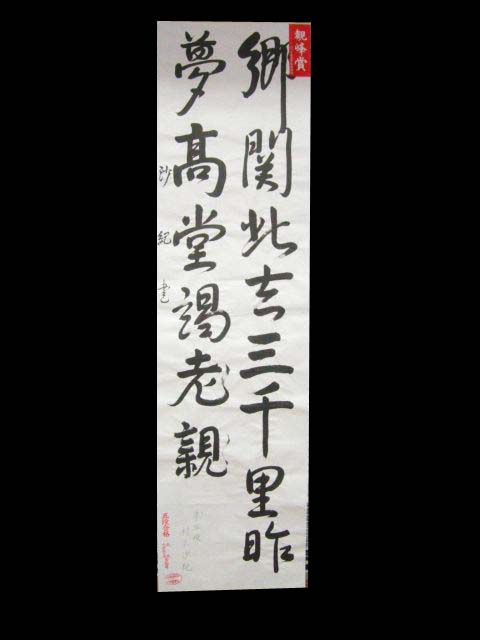 観峰賞
郷関此去三千里昨
夢高堂謁老親
沙紀書